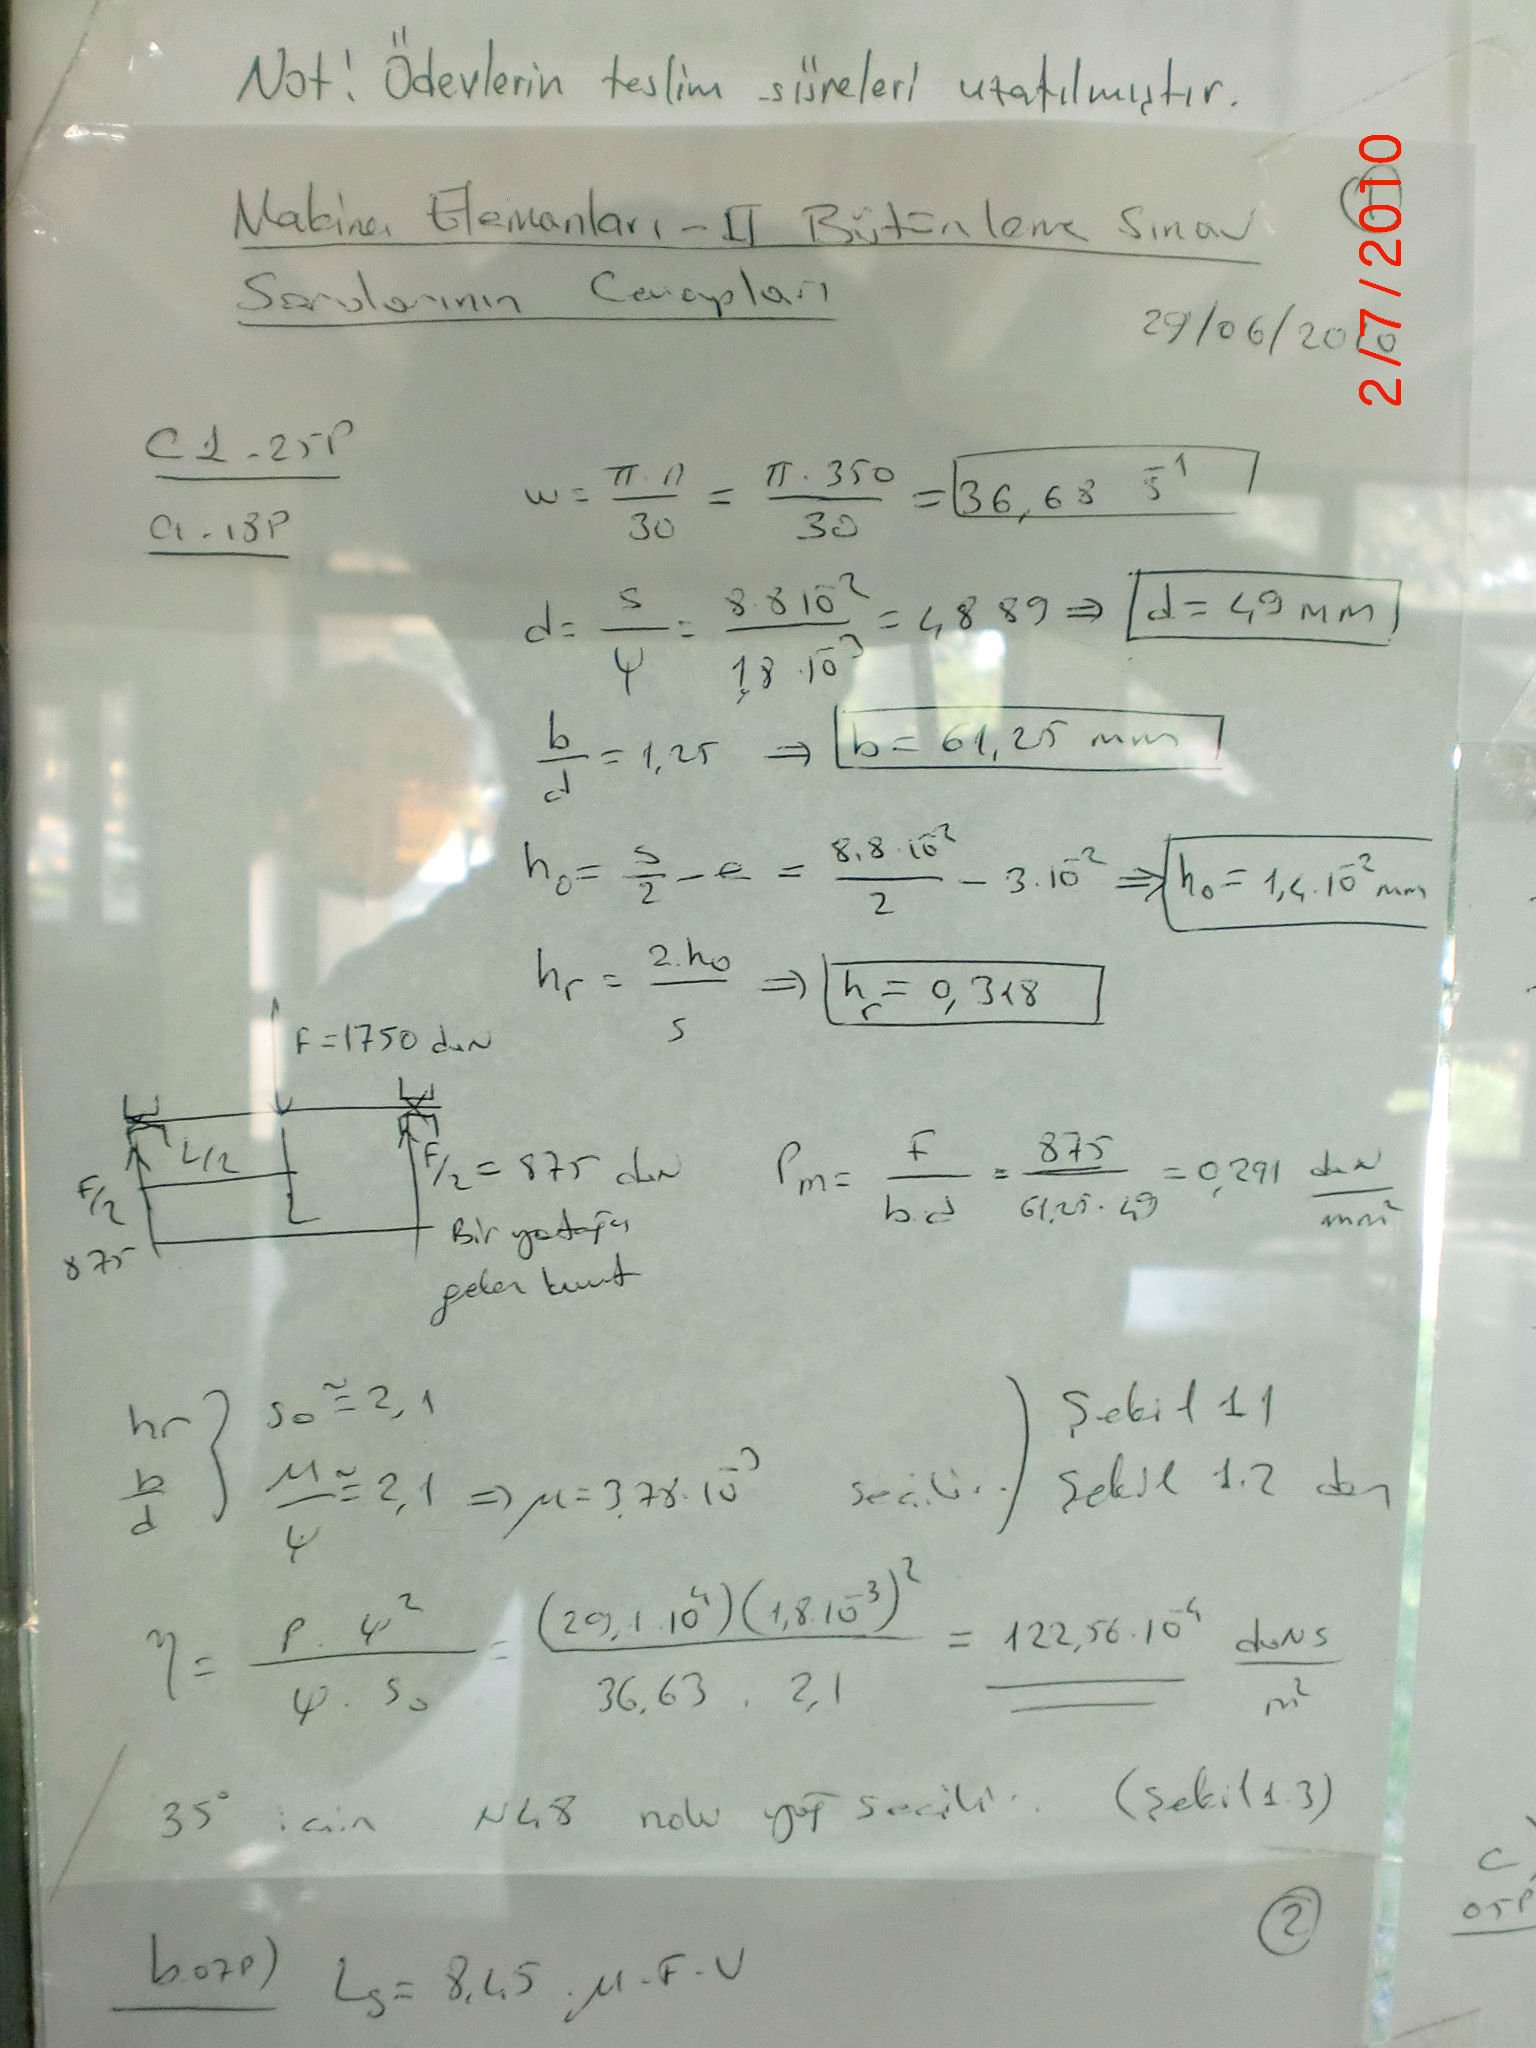 Not! Ödevlerin teslim süreleri uzatılmıştır.
Makina Elemanları-II Bütünleme Sınav
Sorularının Cevapları
1
29/06/2010
2/7/2010
C1-25P
a-18P
w = π.n/30 = π.350/30 = 36,68 s⁻¹
d = s/ψ = 8.8 10⁻²/1,8.10⁻³ = 4889 ⇒ d = 49 mm
b/d = 1,25 ⇒ b = 61,25 mm
h₀ = s/2 - e = 8,8.10⁻²/2 - 3.10⁻² ⇒ h₀ = 1,4.10⁻² mm
hr = 2.h₀/s ⇒ hr = 0,318
F = 1750 daN
L/2
F/2
F/2 = 875 daN
875
Bir yatağa
gelen kuvvet
Pm = F/b.d = 875/61,25.49 = 0,291 daN/mm²
hr
b/d
s₀ ≅ 2,1
μ/ψ ≅ 2,1 ⇒ μ = 3,78.10⁻³ seçilir.
Şekil 1.1
Şekil 1.2 den
η = P.ψ²/ψ.s₀ = (29,1.10⁴)(1,8.10⁻³)²/36,63 . 2,1 = 122,56.10⁻⁴ daNs/m²
35° için N48 nolu yağ seçilir. (Şekil 1.3)
2
b.07P) Ls = 8,45.μ.F.V
C
05P